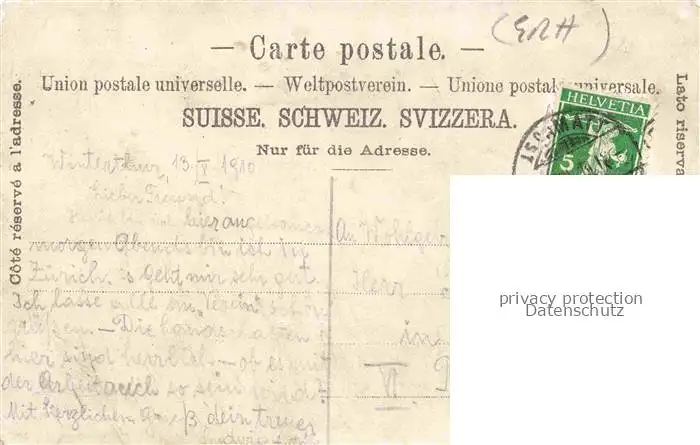 (GRH)
— Carte postale. —
Union postale universelle. — Weltpostverein. — Unione postale universale.
SUISSE. SCHWEIZ. SVIZZERA.
Nur für die Adresse.
Côté réservé à l'adresse.
Lato riserva
HELVETIA
5
Winterthur, 13. V 1910
Lieber Freund!
hier angekommen
morgen Abends bin ich in
Zürich. 's Geht mir sehr gut.
Ich lasse alle im Verein schön
grüßen. — Die
hier sind herrlich — ob es mit
der Arbeit auch so sein wird?
Mit Herzlichem Gruß dein treuer
An Wohlgeb
Herr
in
VI
privacy protection
Datenschutz